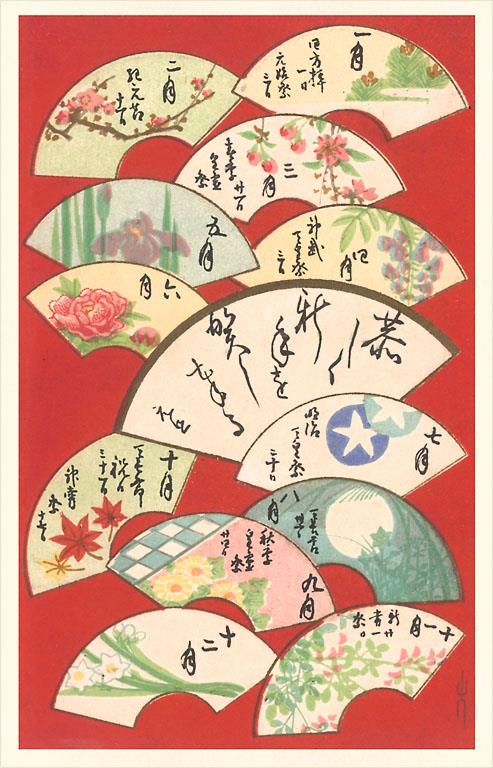 一月
四方拝
一日
元始祭
三日
二月
紀元節
十一日
三月
春季
皇霊祭
廿一日
四月
神武
天皇祭
三日
五月
六月
恭しく
新年を
賀し
七月
明治
天皇祭
三十日
八月
天長節
九月
秋季
皇霊祭
廿四日
十月
天長節
祝日
三十一日
神嘗祭
十七日
十一月
新嘗祭
十二月